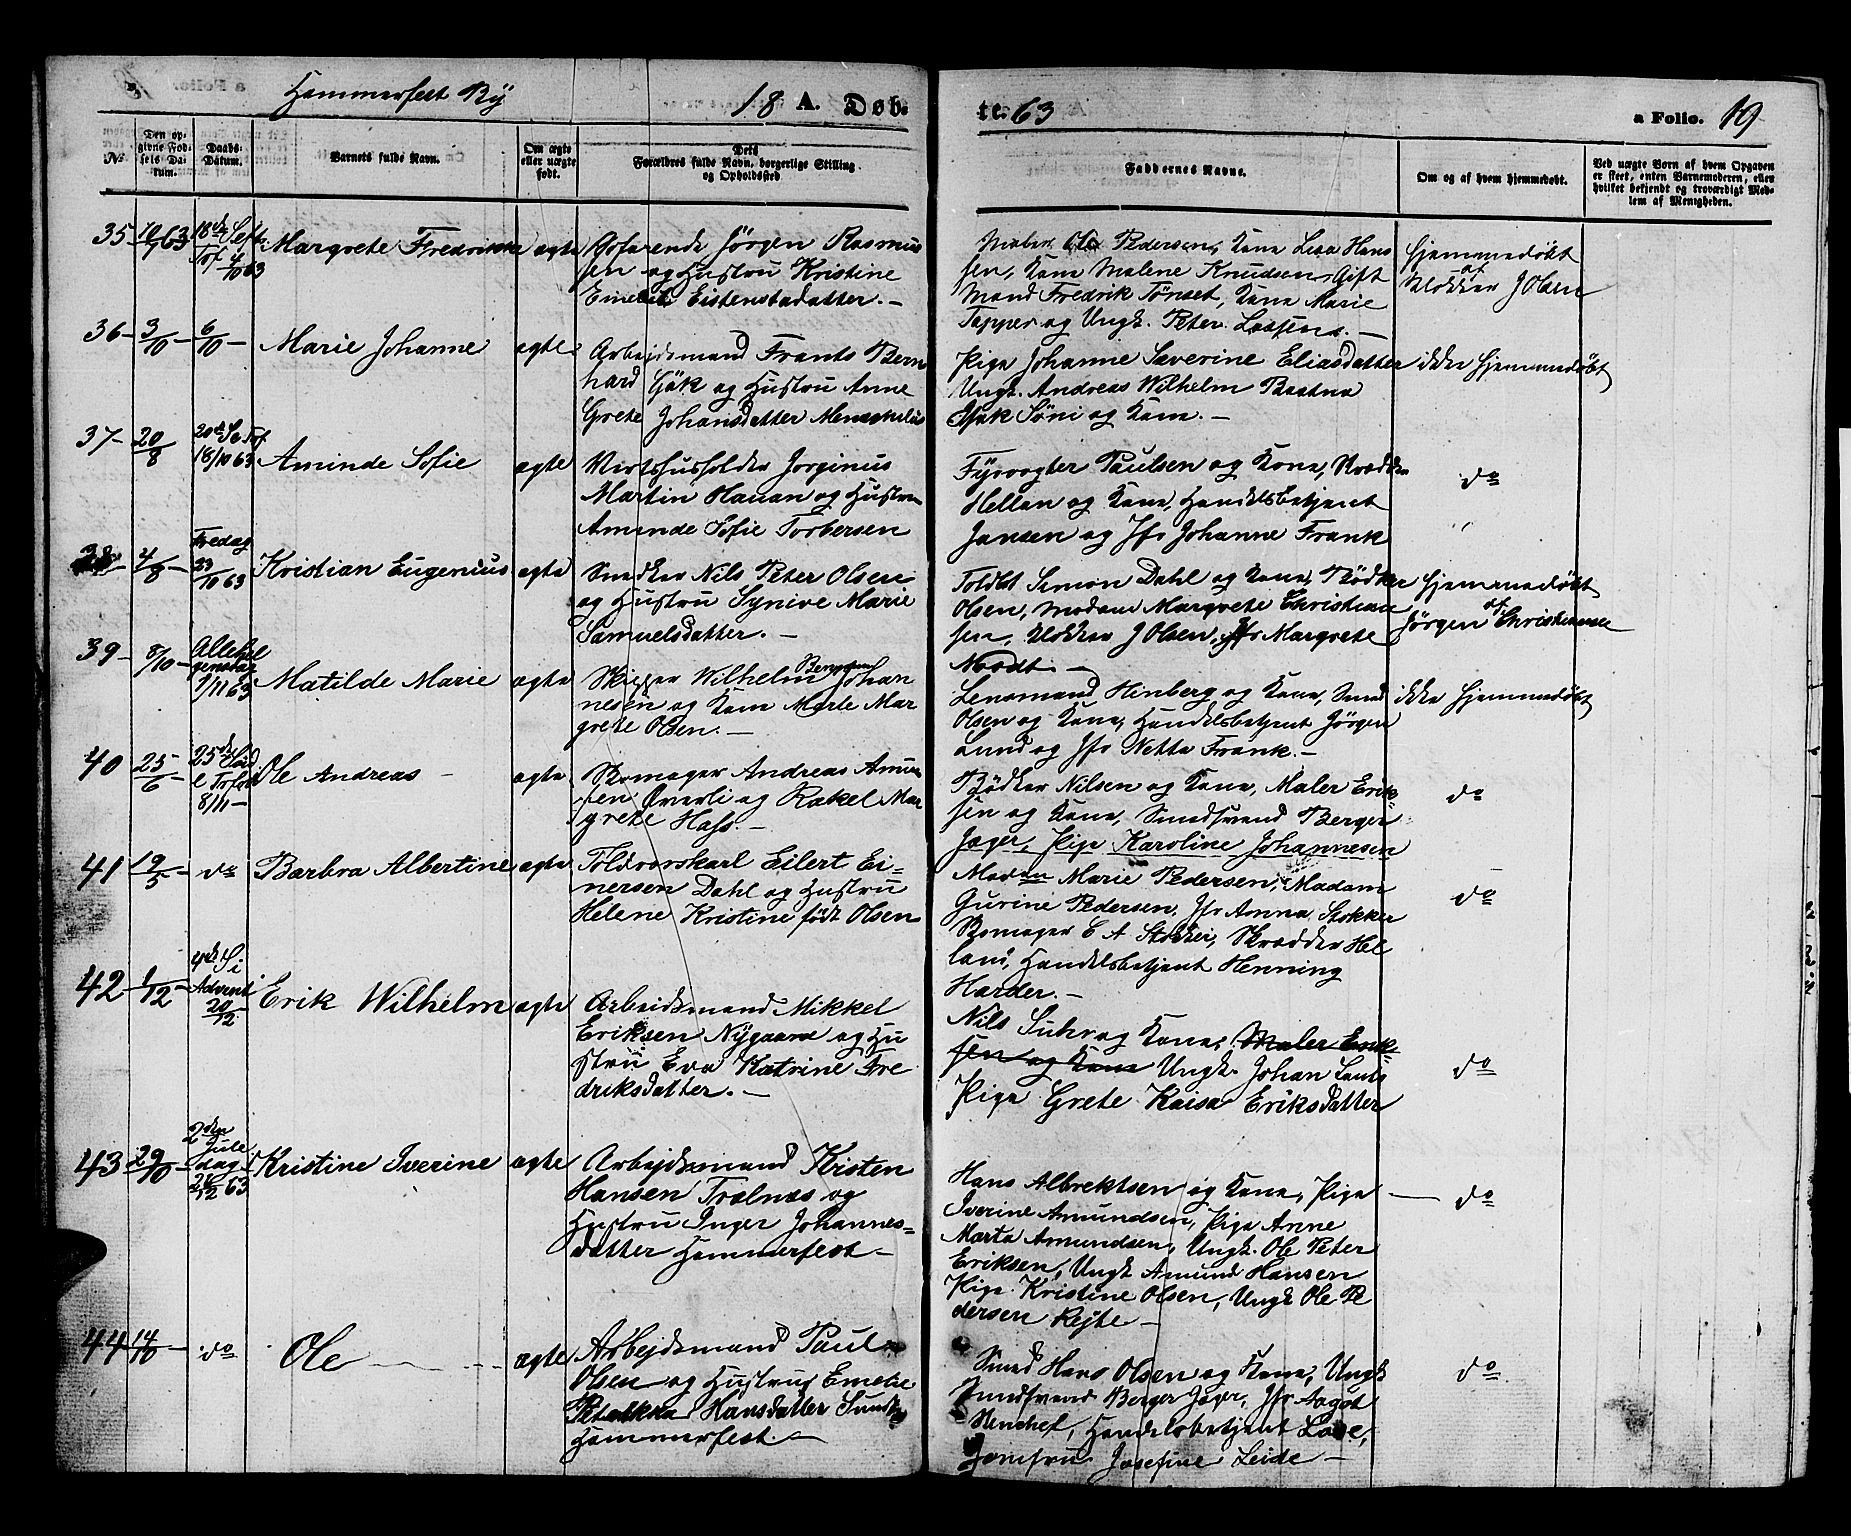 Hammerfest By 18 A. Døb-
te. 63 a Folio. 19
No
Den opgivne Fødsels Datum.
Daabs-Datum.
Barnets fulde Navn.
Om ægte eller uægte født.
Dets Forældres fulde Navn, borgerlige Stilling og Opholdssted.
Faddernes Navne.
Om og af hvem hjemmedøbt.
Ved uægte Børn af hvem Opgaven er skeet, enten Barnemoderen, eller hvilket bekjendt og troværdigt Medlem af Menigheden.
35 63 18de Sept Trf 4/10 63 Margrete Fredrikke ægte
Gofarende Jörgen Rasmus
sen og Hustru Kristine
Emelie Eistensdatter. –
Maler Ole Pedersen, Kone Lisa Hans
sen, Kone Malene Knudsen, Gift
Mand Fredrik Tönset, Kone Marie
Tapper og Ungk. Peter Lassens. –
Hjemmedøbt
af
Klokker J Olsen
36 – 3/10 – 6/10 – Marie Johanne ægte
Arbejdsmand Frants Bern
hard Gjök og Hustru Anne
Grete Johansdatter
Pige Johanne Severine Eliasdatter
Ungk. Andreas Wilhelm
Isak Söni og Kone. –
ikke Hjemmedøbt
37 – 20/8 20de S e Trf 18/10 63 Aminde Sofie ægte
Vertshusholder Jorginus
Martin Hauan og Hustru
Aminde Sofie Torbersen
Fyrvogter Paulsen og Kone, Skrædder
Hellan og Kone, Handelsbetjent
Jansen og Jfr Johanne Frank
do
38 – 4/8 – Fredag 23/10 63 Kristian Eugenius ægte
Snedker Nils Peter Olsen
og Hustru Synive Marie
Samuelsdatter. –
Toldbt Simon Dahl og Kone, Bödker
Olsen, Madam Margrete Christian
sen, Klokker J Olsen, Jfr Margrete
Noodt. –
Hjemmedøbt
af
Jørgen Christiansen
39 – 8/10 – Allehel
gensdag
1/11 63 Matilde Marie ægte
Skipper Wilhelm Johan
nesen og Kone Marte Mar
grete Olsen. –
Lensmand Hinberg og Kone, Smed
Olsen og Kone, Handelsbetjent Jörgen
Lund og Jfr Netta Frank. –
ikke Hjemmedøbt
40 25/6 25de Sönd e Trf 8/11 – Ole Andreas – ægte
Skomager Andreas Amun
sen Överli og Rakel Mar
grete Hafs. –
Bödker Nilsen og Kone, Maler Erik
sen og Kone, Smedsvend Berger
Jager, Pige Karoline Johannesen
do
41 19/5 – do Barbra Albertine ægte
Toldvorskarl Eilert Ei-
nersen Dahl og Hustru
Helene Kristine født Olsen
Madm Marie Pedersen, Madam
Gurine Pedersen, Jfr Anna Stokker
Skomager E A Stokker, Skrædder Hel
land, Handelsbetjent Henning
Harder. –
do
42 1/12 – 4de S i
Advent
20/12 Erik Wilhelm ægte
Arbeidsmand Mikkel
Eriksen Nygaard og Hu
stru Eva Katrine Fre
driksdatter. –
Nils Suhr og Kone, Maler Erik-
sen og Kone Ungk. Johan
Pige Grete Kaisa Eriksdatter
do
43 29/10 – 2den
Jule
dag
26/12 63 Kristine Iverine ægte
Arbejdsmand Kristen
Hansen Trælnæs og
Hustru Inger Johannes-
datter Hammerfest –
Hans Albrektsen og Kone, Pige
Iverine Amundsen, Pige Anne
Marta Amundsen, Ungk. Ole Peter
Eriksen, Ungk Amund Hansen
Pige Kristine Olsen, Ungk Ole Pe
dersen Rejte –
do
44 14/10 – do Ole ægte
Arbejdsmand Paul
Olsen og Hustru Emelie
Petrikka Hansdatter
Hammerfest. –
Smed Hans Olsen og Kone, Ungk
Smedsvend Berger Jager, Jfr Aagot
Henchel, Handelsbetjent
Jomfru Josefine Leide –
do